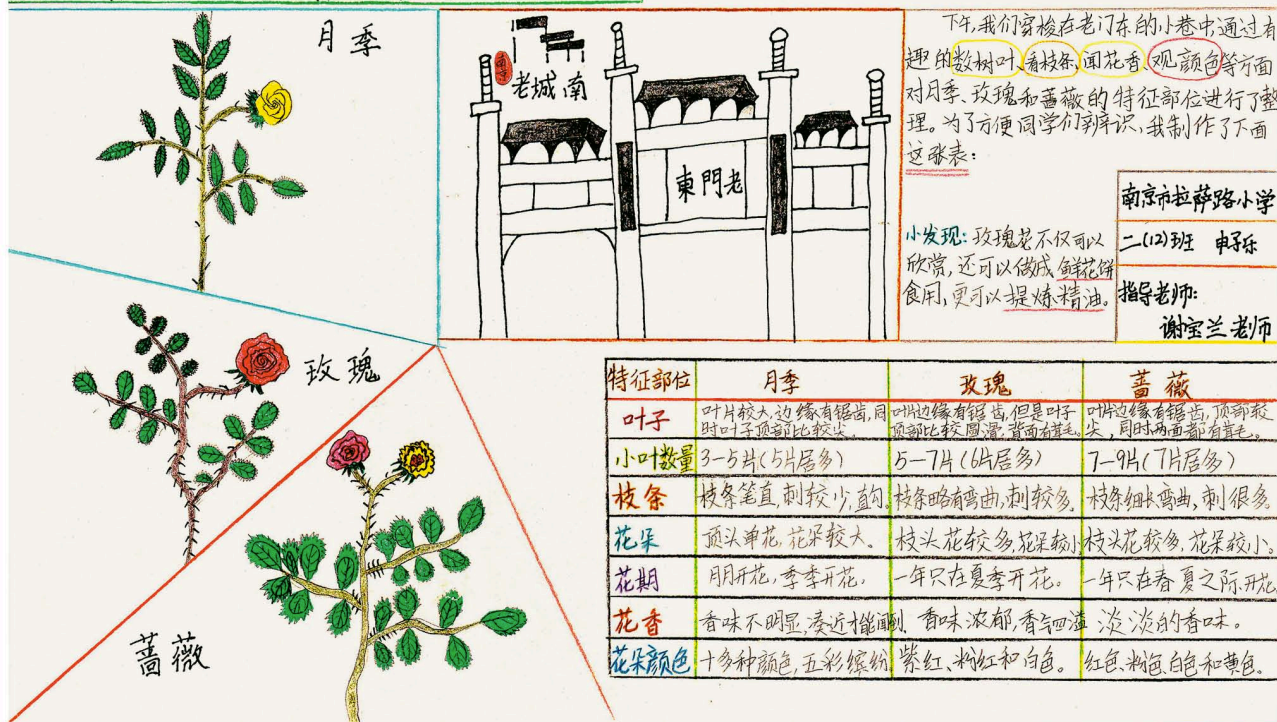 月季
南京
老城南
老門東
下午,我们穿梭在老门东的小巷中通过有
趣的数树叶、看枝条、闻花香、观颜色等方面
对月季、玫瑰和蔷薇的特征部位进行了整
理。为了方便同学们辨识,我制作了下面
这张表:
小发现:玫瑰花不仅可以
欣赏,还可以做成鲜花饼
食用,更可以提炼精油。
南京市拉萨路小学
二(12)班 申子乐
指导老师:
谢宝兰老师
玫瑰
蔷薇
特征部位 月季 玫瑰 蔷薇
叶子 叶片较大,边缘有锯齿,同时叶子顶部比较尖。 叶片边缘有锯齿,但是叶子顶部比较圆滑,背面有茸毛。 叶片边缘有锯齿,顶部较尖,同时两面都有茸毛。
小叶数量 3-5片(5片居多) 5-7片(6片居多) 7-9片(7片居多)
枝条 枝条笔直,刺较少,直的。 枝条略有弯曲,刺较多。 枝条细长弯曲,刺很多。
花朵 顶头单花,花朵较大。 枝头花较多,花朵较小 枝头花较多,花朵较小。
花期 月月开花,季季开花, 一年只在夏季开花。 一年只在春夏之际开花
花香 香味不明显,凑近才能闻到. 香味浓郁,香气四溢 淡淡的香味。
花朵颜色 十多种颜色,五彩缤纷 紫红、粉红和白色。 红色、粉色、白色和黄色。